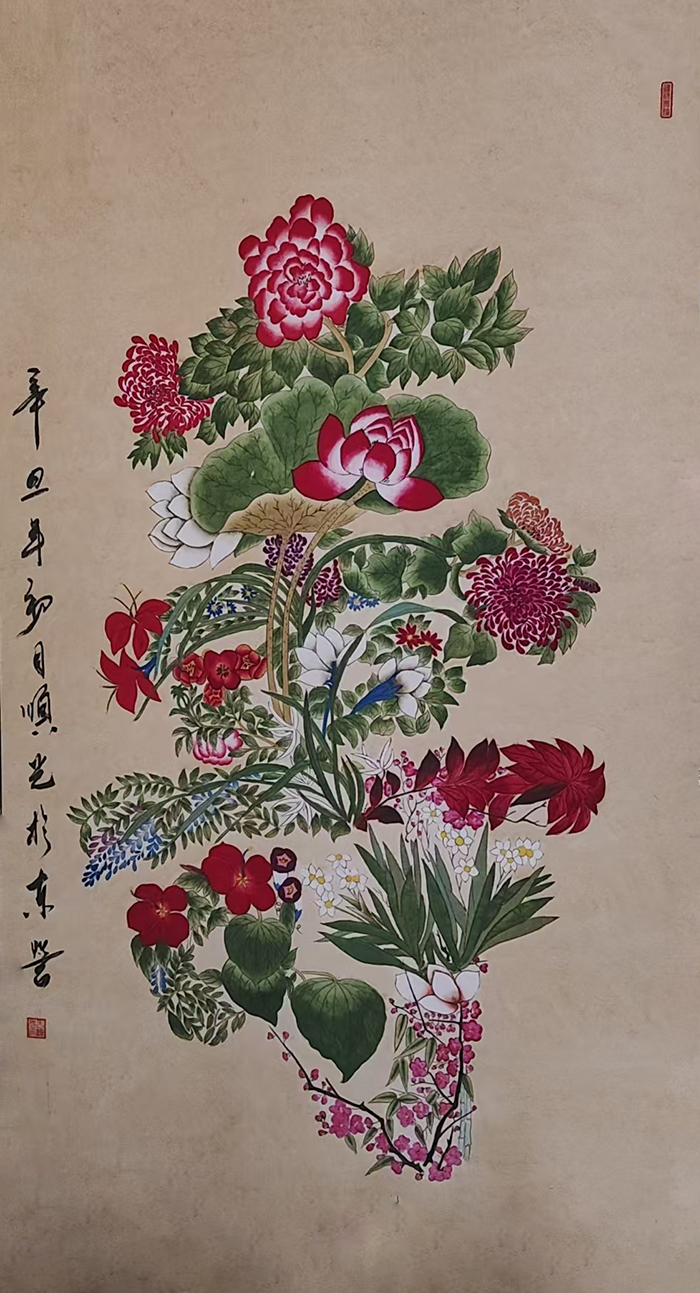 辛丑年初月順光於东營